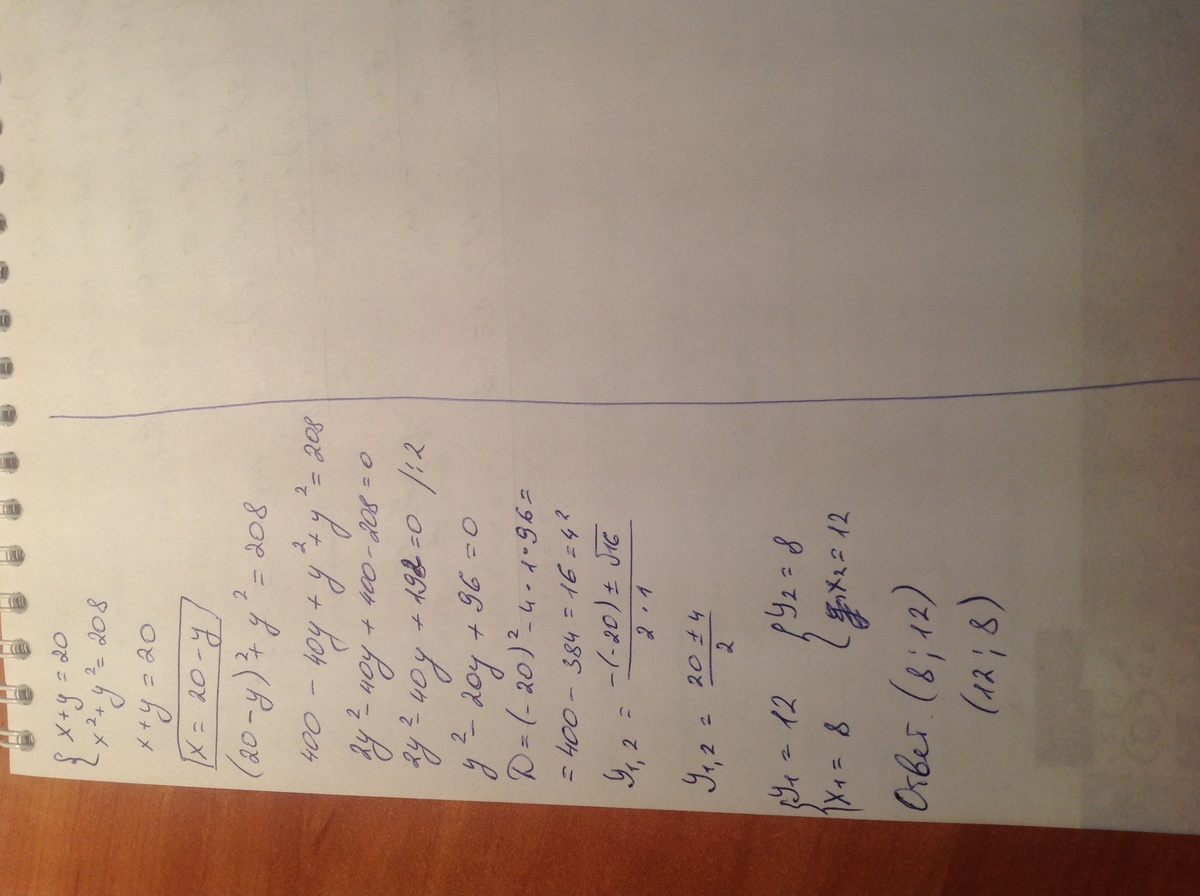 { x+y=20
x²+y²=208
x+y=20
x = 20-y
(20-y)²+y²=208
400-40y+y²+y²=208
2y²-40y+400-208=0
2y²-40y+192=0 /:2
y²-20y+96=0
D=(-20)²-4·1·96=
=400-384=16=4²
y₁,₂ = (-(-20)±√16)/(2·1)
y₁,₂ = (20±4)/2
{ y₁=12 { y₂=8
x₁=8 x₂=12
Ответ. (8;12)
(12;8)